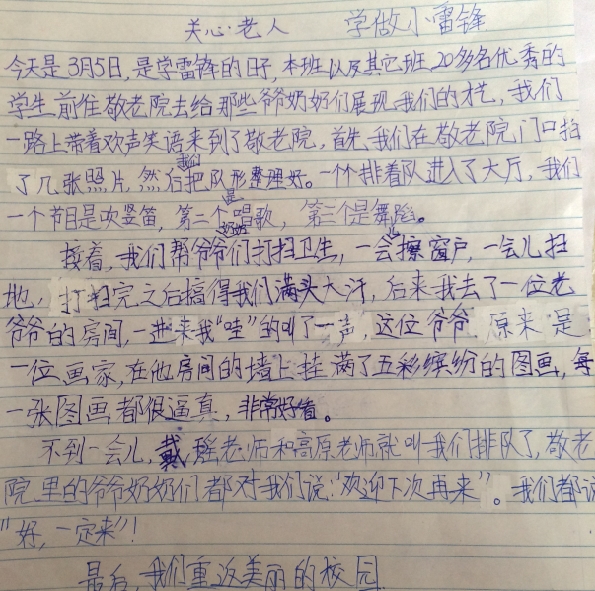 关心老人 学做小雷锋
今天是3月5日,是学雷锋的日子,本班以及其它班20多名优秀的
学生前往敬老院去给那些爷爷奶奶们展现我们的才艺,我们
一路上带着欢声笑语来到了敬老院,首先,我们在敬老院门口拍
了几张照片,然后我们把队形整理好。一个个排着队进入了大厅,我们
一个节目是吹竖笛,第二个是唱歌,第三个是舞蹈。
接着,我们帮爷爷奶奶们打扫卫生,一会儿擦窗户,一会儿扫
地,打扫完之后搞得我们满头大汗,后来我去了一位老
爷爷的房间,一进来我“哇”的叫了一声,这位爷爷原来是
一位画家,在他房间的墙上挂满了五彩缤纷的图画,每
一张图画都很逼真,非常好看。
不到一会儿,戴瑶老师和高原老师就叫我们排队了,敬老
院里的爷爷奶奶们都对我们说:“欢迎下次再来”。我们都说
“好,一定来”!
最后,我们重返美丽的校园